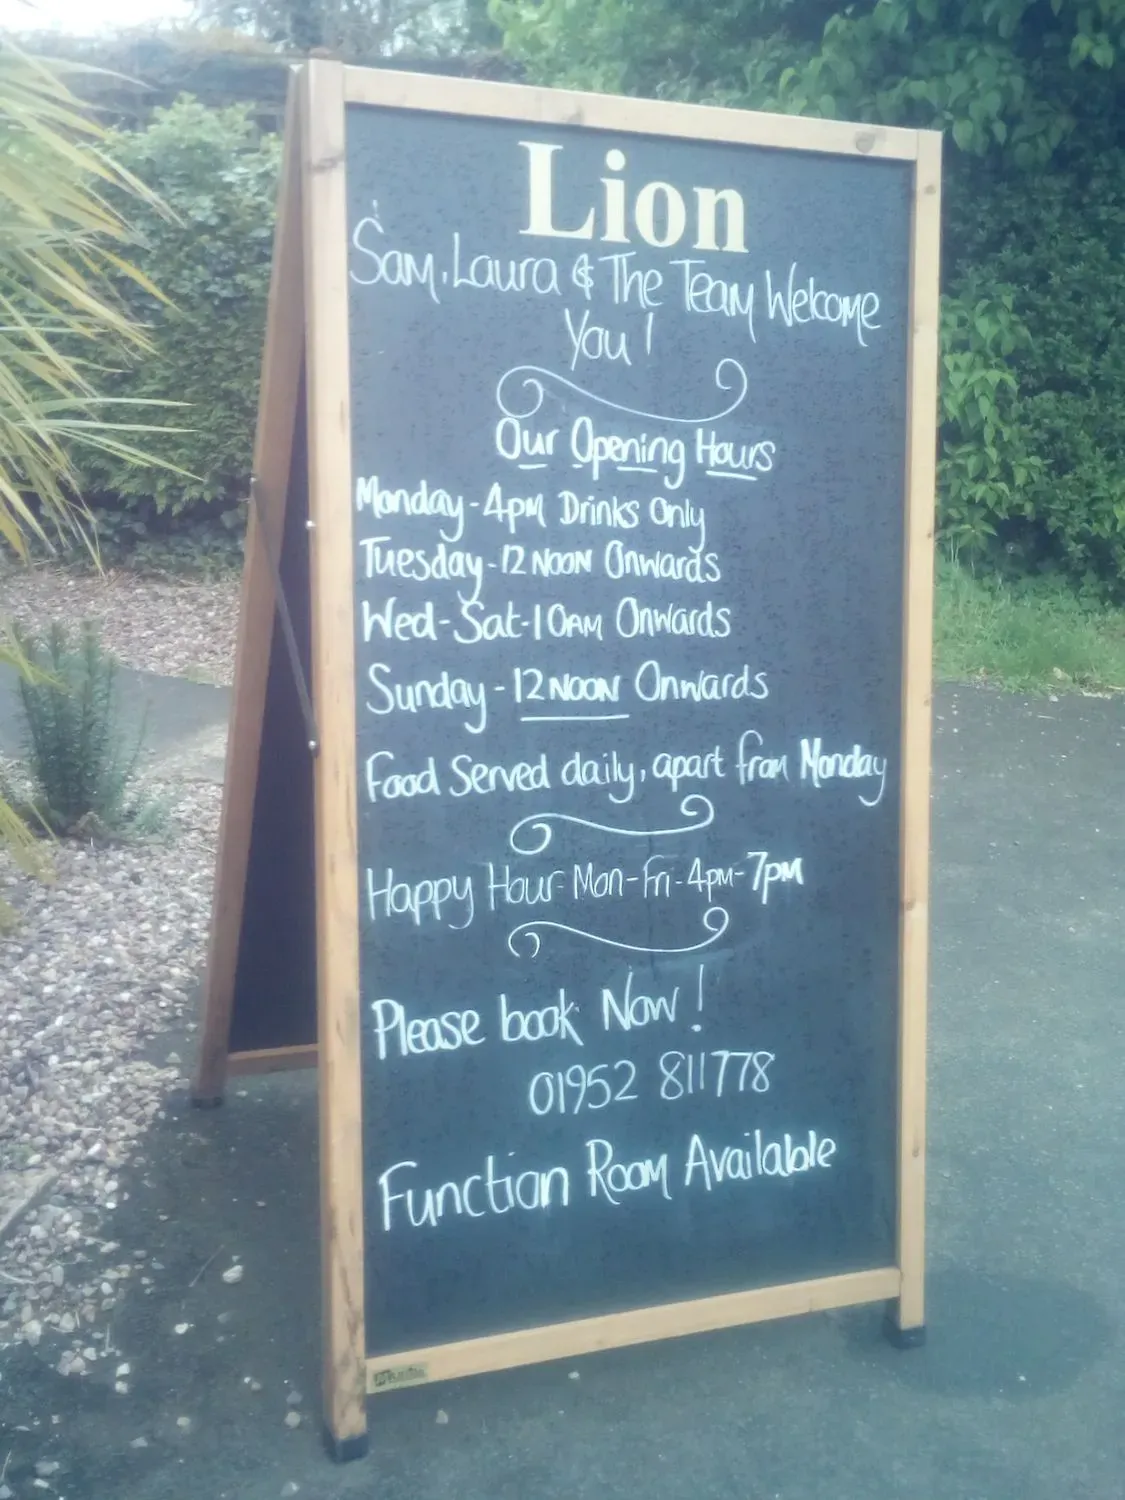 Lion
Sam, Laura & The Team Welcome
You!
Our Opening Hours
Monday - 4pm Drinks Only
Tuesday - 12 NOON Onwards
Wed - Sat - 10AM Onwards
Sunday - 12 NOON Onwards
Food Served daily, apart from Monday
Happy Hour - Mon - Fri - 4pm - 7pm
Please book Now!
01952 811778
Function Room Available